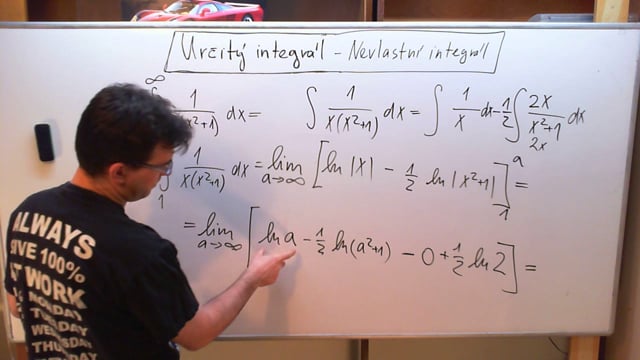 Určitý integrál - Nevlastní integrál
∞ ∫ 1/(x(x²+1)) dx = ∫ 1/(x(x²+1)) dx = ∫ 1/x dx - 1/2 ∫ 2x/(x²+1) dx
2x
∫ 1 1/(x(x²+1)) dx = lim a→∞ [ln |x| - 1/2 ln |x²+1|] 1 a =
= lim a→∞ [ln a - 1/2 ln(a²+1) - 0 + 1/2 ln 2] =
ALWAYS
GIVE 100%
AT WORK
MONDAY
TUESDAY